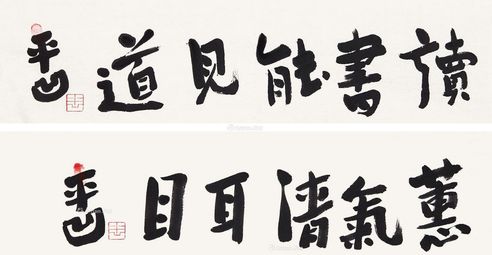 讀書能見道
平凹
蕙氣清耳目
平凹